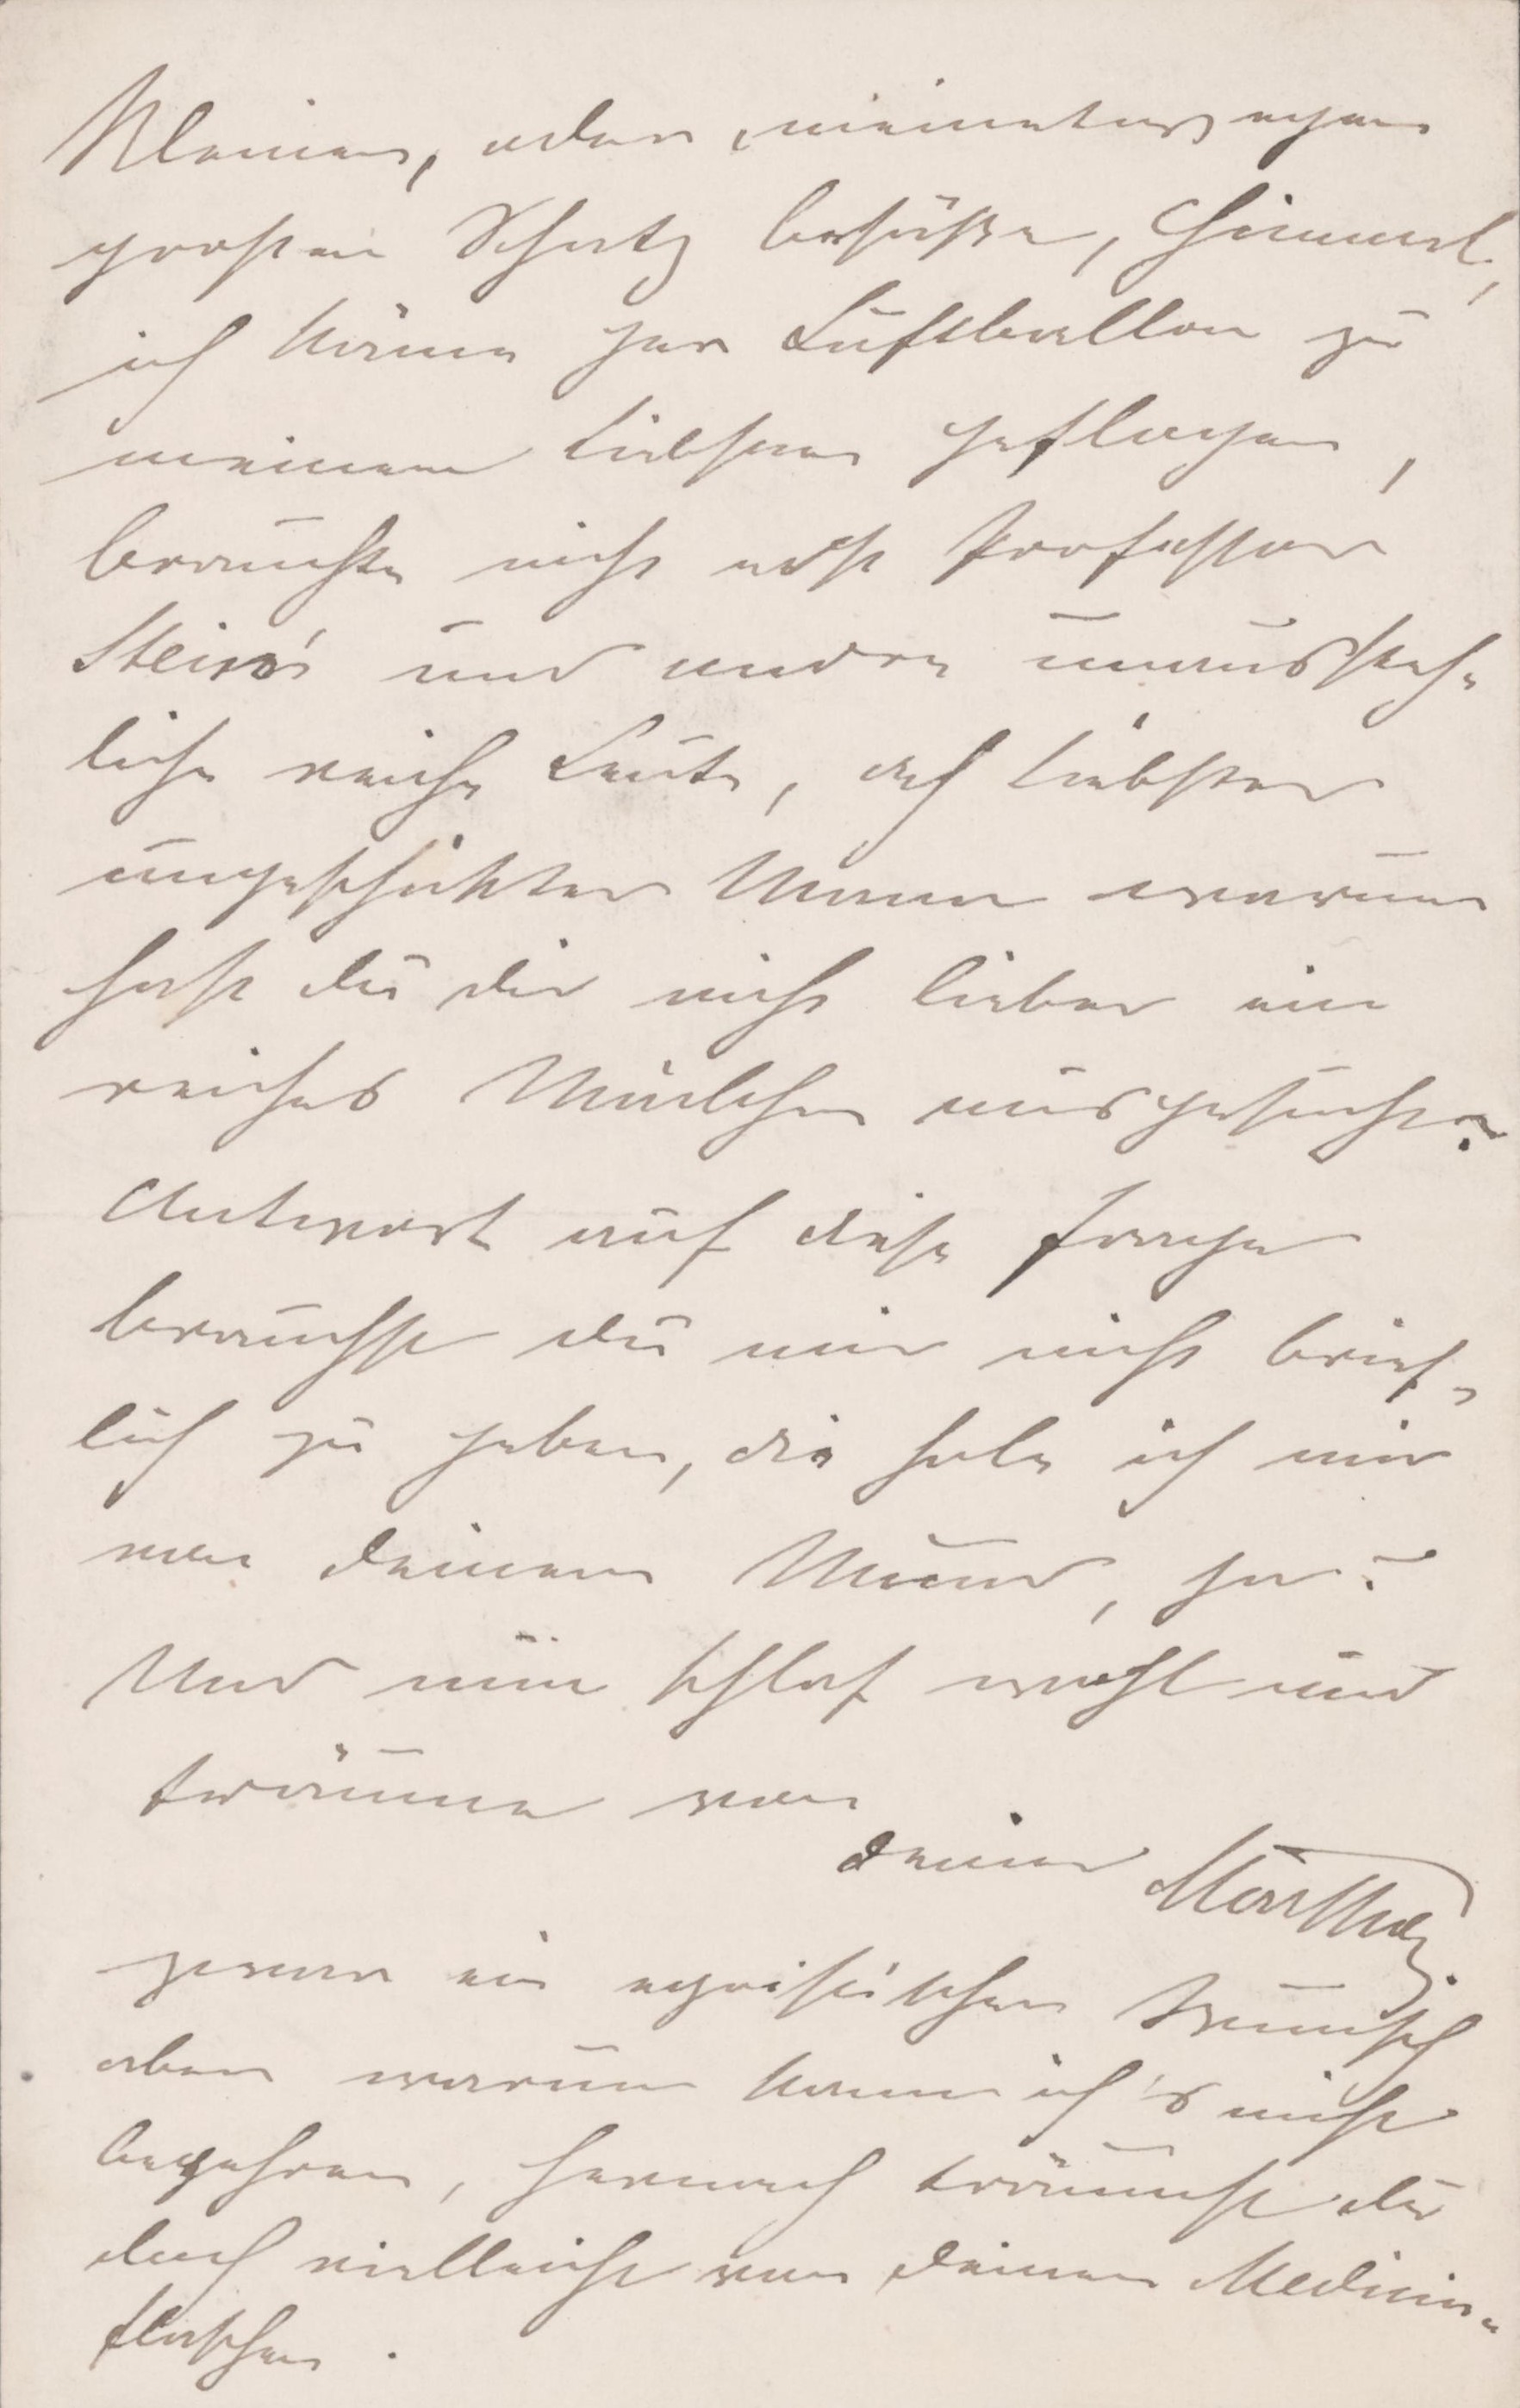 kleinen, oder meinetwegen
großen Schatz besäße, Himmel,
ich käme per Luftballon zu
meinem Liebsten geflogen,
brauchte nicht erst Professor
Stein's und andre unaussteh-
liche reiche Leute, ach liebster
ungeschickter Mann warum
hast du dir nicht lieber ein
reiches Mädchen ausgesucht?
Antwort auf diese Frage
brauchst du mir nicht brief-
lich zu geben, die hole ich mir
von deinem Mund, ja?
Und nun schlaf wohl und
träume von
deiner Martha,
zwar ein egoistischer Wunsch
aber warum kann ich's nicht
begehren, hernach träumst du
doch vielleicht von deinen Medicin-
flaschen.